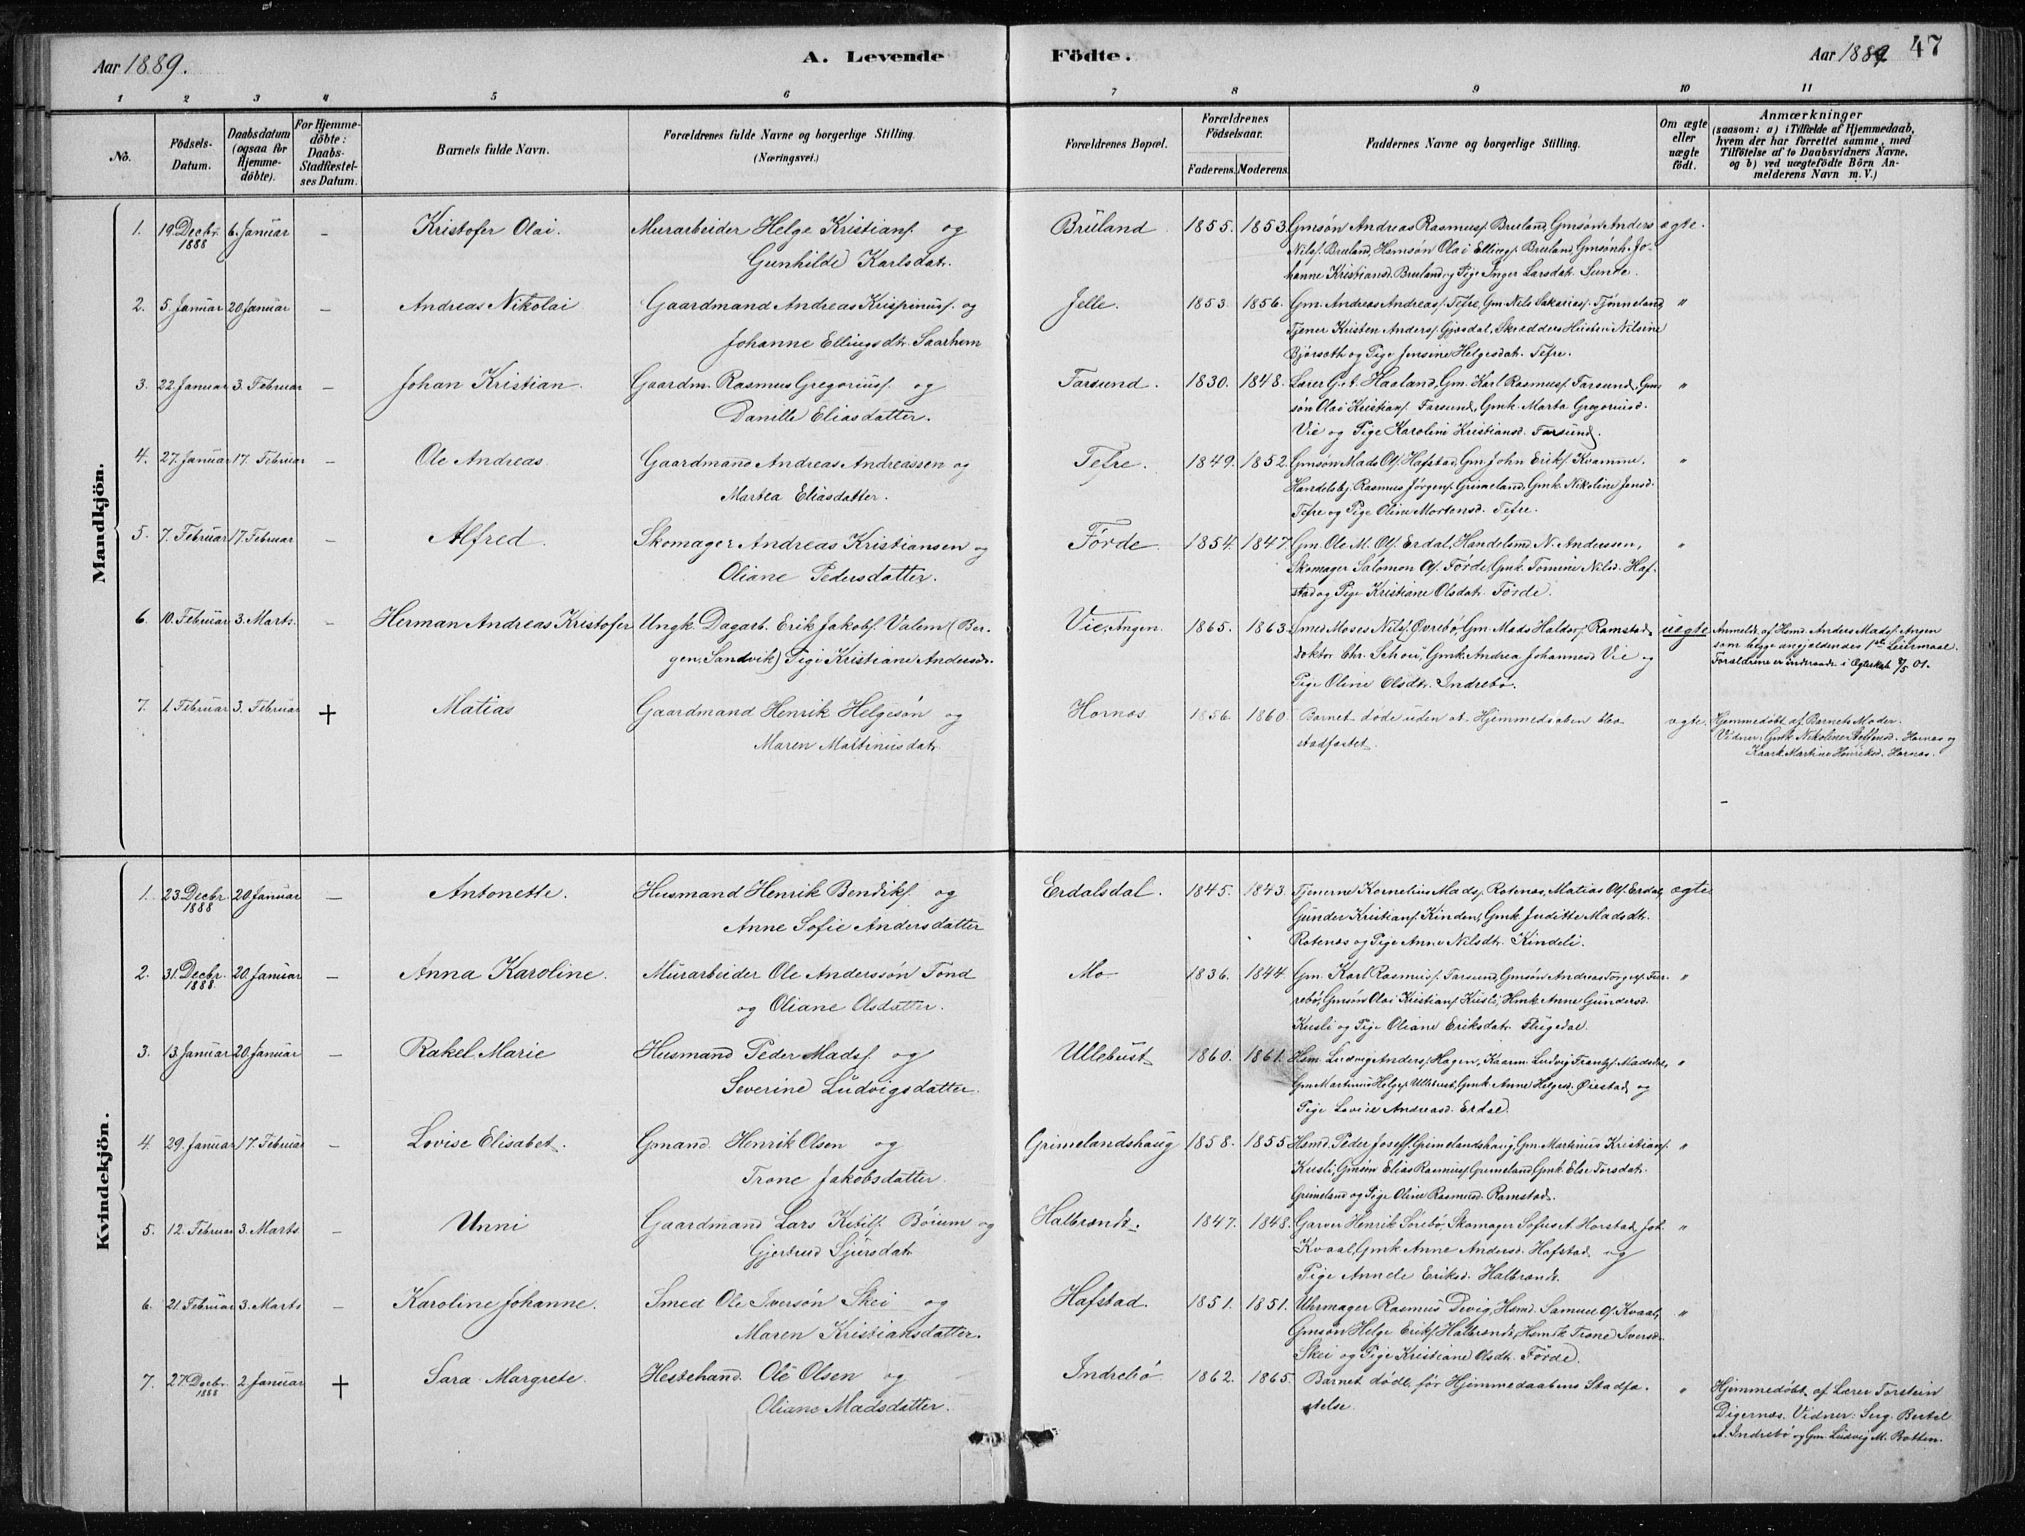 Aar 1889.
A. Levende
Födte.
Aar 1889
47
1 2 3 4 5 6 7 8 9 10 11
No.
Födsels-
Datum.
Daabsdatum
(ogsaa for
Hjemme-
döbte).
For Hjemme-
döbte:
Daabs-
Stadfæstel-
ses Datum.
Barnets fulde Navn.
Forældrenes fulde Navne og borgerlige Stilling.
(Næringsvei.)
Forældrenes Bopæl.
Forældrenes
Födselsaar.
Faderens. Moderens.
Faddernes Navne og borgerlige Stilling.
Om ægte
eller
uægte
födt.
Anmærkninger
(saasom: a) i Tilfælde af Hjemmedaab,
hvem der har forrettet samme, med
Tilföielse af to Daabsvidners Navne,
og b) ved uægtefödte Börn An-
melderens Navn m. V.)
Mandkjön.
1. 19. Decbr. 1888 6. Januar – Kristofer Olai. Murarbeider Helge Kristians. og
Gunhilde Karlsdat.
Bruland 1855. 1853. Gmsøn Andreas Rasmus. Bruland, Gmsøn Anders
Nils. Bruland, Hsmsøn Olai Ellings. Bruland, Gmsønk. Jo-
hanne Kristiansd. Bruland og Pige Inger Larsdat. Sunde.
ægte.
2. 5. Januar 20 Januar – Andreas Nikolai Gaardmand Andreas Krispinus. og
Johanne Ellingsdtr. Saarhem
Jelle. 1853. 1856. Gm. Andreas Andreas. Tefre, Gm. Nils Sakarias. Tjønneland,
Tjener Kristen Anders. Gjøsdal, Skrædders Hustru Nilsine
Bjørseth og Pige Jensine Helgesdat. Tefre.
"
3. 22 Januar 3. Februar – Johan Kristian. Gaardm. Rasmus Gregorius. og
Danille Eliasdatter.
Farsund. 1830. 1848. Lærer G. A. Haaland, Gm. Karl Rasmus. Farsund, Gm-
søn Olai Kristians. Farsund, Gmk. Marta Gregoriusd.
Vie og Pige Karoline Kristiansd. Farsund.
"
4. 27. Januar 17. Februar – Ole Andreas. Gaardmand Andreas Andreassen og
Martea Eliasdatter.
Tefre. 1849. 1852. Gmsøn Mads Ols. Hafstad, Gm. John Eriks. Kvamme,
Handelsbj. Rasmus Jørgens. Grimeland, Gmk. Nikoline Jensd.
Tefre og Pige Oline Mortensd. Tefre.
"
5. 7. Februar 17. Februar – Alfred. Skomager Andreas Kristiansen og
Oliane Pedersdatter.
Førde. 1854. 1847. Gm. Ole M. Ols. Erdal, Handelsmd. N. Anderssen,
Skomager Salomon Ols. Førde, Gmk. Tomine Nilsd. Haf-
stad og Pige Kristiane Olsdat. Førde.
"
6. 10. Februar 3. Marts. – Herman Andreas Kristofer Ungk. Dagarb. Erik Jakobs. Valem (Ber-
gen, Sandvik) Pige Kristiane Andersdr.
Vie, Angen. 1865. 1863. Smed Moses Nils. Øvrebø, Gm. Mads Haldos. Ramstad,
Doktor Chr. Schou, Gmk. Andrea Johannesd. Vie og
Pige Oline Olsdtr. Indrebø.
uægte
Anmeldt af Hsmd. Anders Mads. Angen
som begge angjældendes 1ste Leiermaal.
Forældrene er indtraadte i Ægteskab 9/5 01.
7. 1. Februar 3. Februar † Matias Gaardmand Henrik Helgesøn og
Maren Martinusdat.
Hornæs 1856. 1860. Barnet døde uden at Hjemmedaaben blev
stadfæstet.
ægte.
Hjemmedøbt af Barnets Moder.
Vidner: Gmk. Nikoline Hornæs og
Kaark. Martine Henriksd. Hornæs.
Kvindekjön.
1. 23. Decbr. 1888 20. Januar – Antonette. Husmand Henrik Bendiks. og
Anne Sofie Andersdatter
Erdalsdal. 1845. 1843. Tjenerne Kornelius Mads. Rotenæs, Matias Ols. Erdal,
Gunder Kristians. Kinden, Gmk. Juditte Madsdt.
Rotenæs og Pige Anne Nilsdtr. Kindeli.
ægte
2. 31. Decbr. 1888 20. Januar – Anna Karoline. Murarbeider Ole Anderssøn Tond
og Oliane Olsdatter.
Mo 1836. 1844. Gm. Karl Rasmus. Farsund, Gmsøn Andreas Torgers. Fur-
rebø, Gmsøn Olai Kristians. Kusli, Hmk. Anne Gundersd.
Kusli og Pige Oliane Eriksdat. Flugedal.
"
3. 13. Januar 20. Januar – Rakel Marie Husmand Peder Mads. og
Severine Ludvigsdatter.
Ullebust 1860. 1861. Hsm. Ludvig Anders. Hagen, Kaarm. Ludvig Frants. Aadsdal,
Gm. Martinus Helges. Ullebust, Gmk. Anne Helgesd. Øiestad, og
Pige Lovise Andreasd. Erdal.
"
4. 29. Januar 17. Februar – Lovise Elisabet. Gmand. Henrik Olsen og
Trone Jakobsdatter.
Grimelandshaug 1858. 1855. Hsmd. Peder Josefs. Grimelandshaug, Gm. Martinus Kristians.
Kusli, Gmsøn Elias Rasmus. Grimeland, Gmk. Else Torsdat.
Grimeland og Pige Oline Rasmusd. Ramstad.
"
5. 12. Februar 3. Marts. – Unni Gaardmand Lars Ketils. Bøium og
Gjertrud Sjursdat.
Halbrændt. 1847. 1848. Garver Henrik Sørebø, Skomager Sofus A. Horstad, Joh.
Kvaal, Gmk. Anne Andersd. Hafstad og
Pige Annele Eriksd. Halbrændt.
"
6. 21. Februar 3. Marts – Karoline Johanne. Smed Ole Iversøn Skei og
Maren Kristiansdatter.
Hafstad. 1851. 1851. Uhrmager Rasmus Devig, Hsmd. Samuel Ols. Kvaal,
Gmsøn Helge Eriks. Halbrændt, Hsmdk. Trone Iversd.
Skei og Pige Kristiane Olsdt. Førde.
"
7. 27. Decbr. 1888 2. Januar † Sara Margrete Hestehand. Ole Olsen og
Oliane Madsdatter.
Indrebø 1862. 1865. Barnet døde før Hjemmedaabens Stadfæ-
stelse.
"
Hjemmedøbt af Lærer Torstein
Digernæs. Vidner: Serg. Bertel
A. Indrebø og Gm. Ludvig M. Botten.